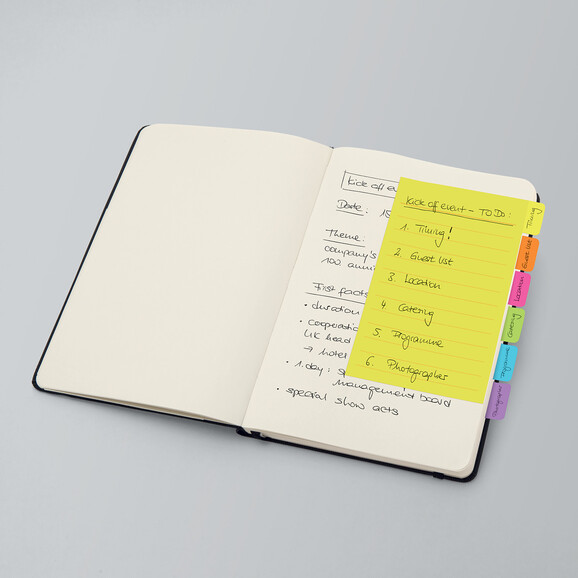 Kick off ev
Date: 15
Theme:
company's
100 anni
First facts
• duration
• cooperatio
UK head
→ hotel
• 1. day: s
management board
• special show acts
Kick off event - TO DO:
1. Timing!
2. Guest list
3. Location
4. Catering
5. Programme
6. Photographer
Timing
Guest list
Location
Catering